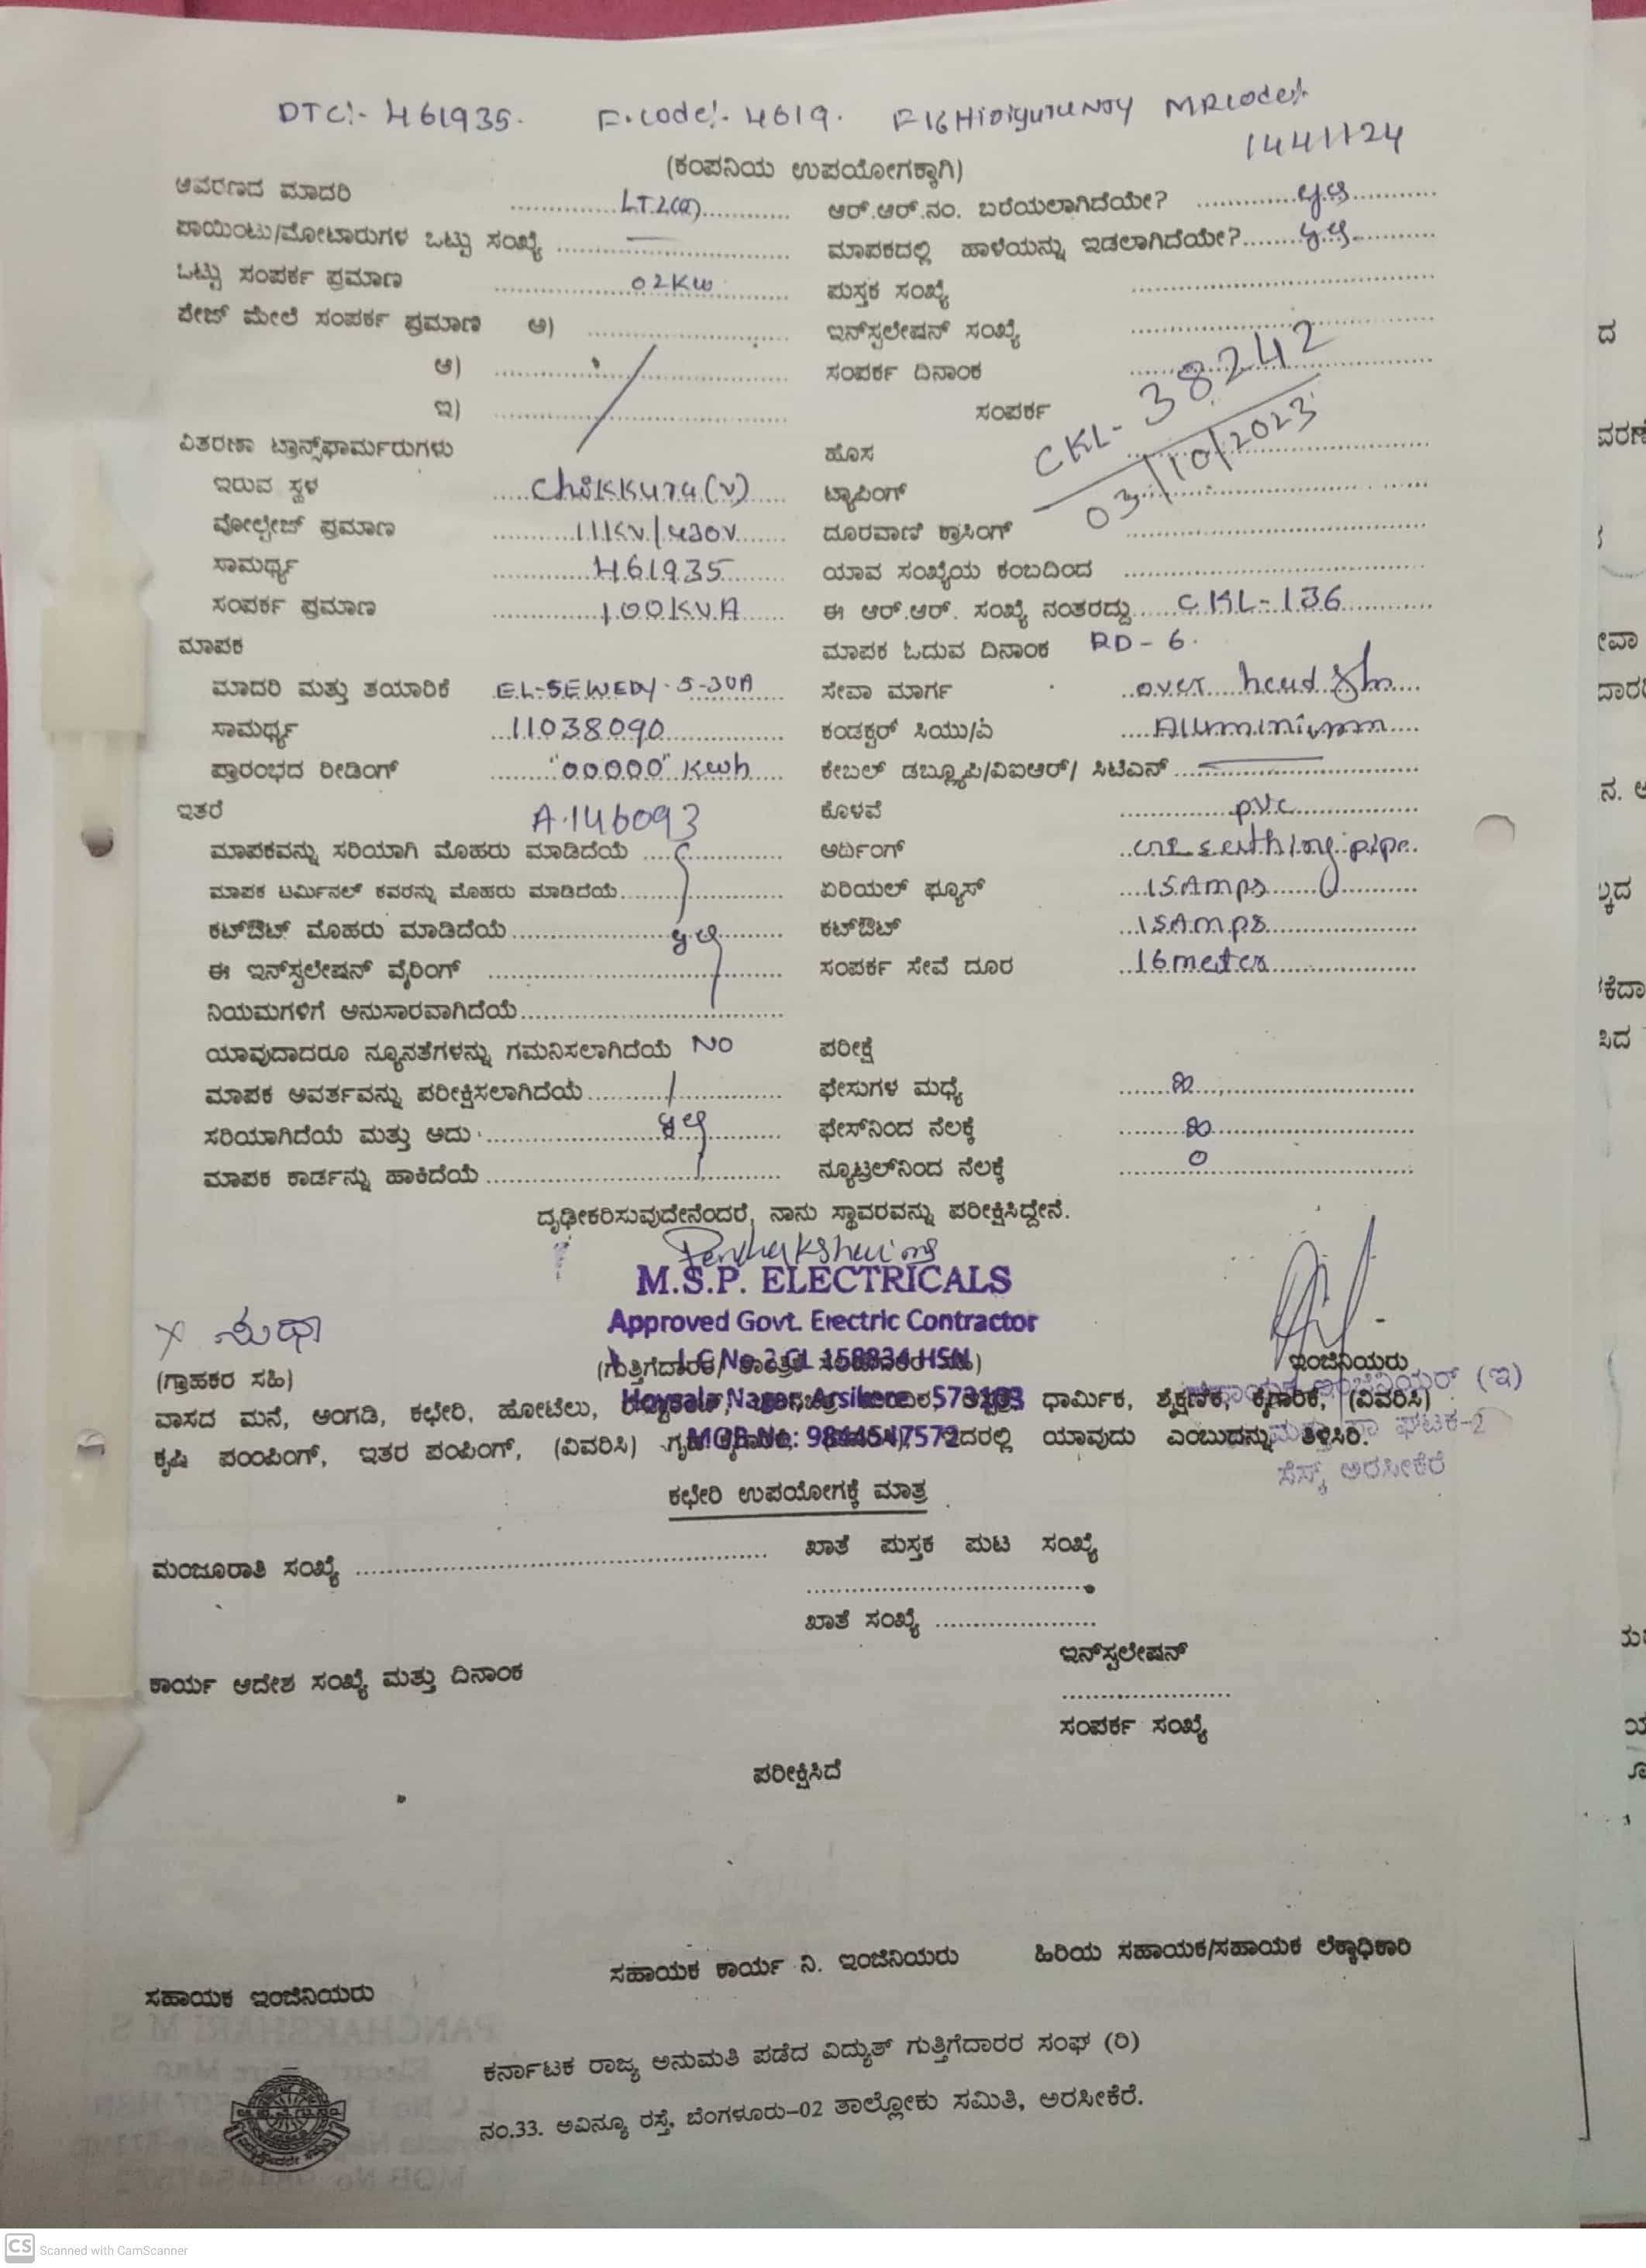 DTC:- 461935. F.code:- 4619. F16 MRcode:-
14411124
(ಕಂಪನಿಯ ಉಪಯೋಗಕ್ಕಾಗಿ)
ಆವರಣದ ಮಾದರಿ LT2(a) ಆರ್.ಆರ್.ನಂ. ಬರೆಯಲಾಗಿದೆಯೇ? yes
ಪಾಯಿಂಟು/ಮೋಟಾರುಗಳ ಒಟ್ಟು ಸಂಖ್ಯೆ — ಮಾಪಕದಲ್ಲಿ ಹಾಳೆಯನ್ನು ಇಡಲಾಗಿದೆಯೇ? yes
ಒಟ್ಟು ಸಂಪರ್ಕ ಪ್ರಮಾಣ 02KW ಪುಸ್ತಕ ಸಂಖ್ಯೆ
ಪೇಜ್ ಮೇಲೆ ಸಂಪರ್ಕ ಪ್ರಮಾಣ ಅ) ಇನ್‌ಸ್ಟಲೇಷನ್ ಸಂಖ್ಯೆ
ಆ) ಸಂಪರ್ಕ ದಿನಾಂಕ CKL-38242
ಇ) ಸಂಪರ್ಕ 03/10/2023
ವಿತರಣಾ ಟ್ರಾನ್ಸ್‌ಫಾರ್ಮರುಗಳು ಹೊಸ
ಇರುವ ಸ್ಥಳ Chikkura(V) ಟ್ಯಾಪಿಂಗ್
ವೋಲ್ಟೇಜ್ ಪ್ರಮಾಣ 11KV/430V ದೂರವಾಣಿ ಕ್ರಾಸಿಂಗ್
ಸಾಮರ್ಥ್ಯ 461935 ಯಾವ ಸಂಖ್ಯೆಯ ಕಂಬದಿಂದ
ಸಂಪರ್ಕ ಪ್ರಮಾಣ 100KVA ಈ ಆರ್.ಆರ್. ಸಂಖ್ಯೆ ನಂತರದ್ದು CKL-136
ಮಾಪಕ ಮಾಪಕ ಓದುವ ದಿನಾಂಕ RD-6.
ಮಾದರಿ ಮತ್ತು ತಯಾರಿಕೆ EL-SEWEDY-5-30A ಸೇವಾ ಮಾರ್ಗ over head
ಸಾಮರ್ಥ್ಯ 11038090 ಕಂಡಕ್ಟರ್ ಸಿಯು/ಎ Alluminiumm
ಪ್ರಾರಂಭದ ರೀಡಿಂಗ್ "00000" Kwh ಕೇಬಲ್ ಡಬ್ಲ್ಯೂಪಿ/ವಿಐಆರ್/ ಸಿಟಿಎಸ್
ಇತರೆ A.146093 ಕೊಳವೆ pvc
ಮಾಪಕವನ್ನು ಸರಿಯಾಗಿ ಮೊಹರು ಮಾಡಿದೆಯೆ ಅರ್ದಿಂಗ್ one earthing pipe
ಮಾಪಕ ಟರ್ಮಿನಲ್ ಕವರನ್ನು ಮೊಹರು ಮಾಡಿದೆಯೆ ಏರಿಯಲ್ ಫ್ಯೂಸ್ 15Amps
ಕಟ್‌ಔಟ್ ಮೊಹರು ಮಾಡಿದೆಯೆ yes ಕಟ್‌ಔಟ್ 15Amps
ಈ ಇನ್‌ಸ್ಟಲೇಷನ್ ವೈರಿಂಗ್ ಸಂಪರ್ಕ ಸೇವೆ ದೂರ 16meter
ನಿಯಮಗಳಿಗೆ ಅನುಸಾರವಾಗಿದೆಯೆ
ಯಾವುದಾದರೂ ನ್ಯೂನತೆಗಳನ್ನು ಗಮನಿಸಲಾಗಿದೆಯೆ NO ಪರೀಕ್ಷೆ
ಮಾಪಕ ಅವರ್ತವನ್ನು ಪರೀಕ್ಷಿಸಲಾಗಿದೆಯೆ ಫೇಸುಗಳ ಮಧ್ಯೆ
ಸರಿಯಾಗಿದೆಯೆ ಮತ್ತು ಅದು yes ಫೇಸ್‌ನಿಂದ ನೆಲಕ್ಕೆ
ಮಾಪಕ ಕಾರ್ಡನ್ನು ಹಾಕಿದೆಯೆ ನ್ಯೂಟ್ರಲ್‌ನಿಂದ ನೆಲಕ್ಕೆ 0
ದೃಢೀಕರಿಸುವುದೇನೆಂದರೆ, ನಾನು ಸ್ಥಾವರವನ್ನು ಪರೀಕ್ಷಿಸಿದ್ದೇನೆ.
M.S.P. ELECTRICALS
Approved Govt. Electric Contractor
X ಸುಧಾ
(ಗ್ರಾಹಕರ ಸಹಿ) L C No 2 CL 158834 HSN ಇಂಜಿನಿಯರು
ಸಹಾಯಕ ಇಂಜಿನಿಯರ್ (ಇ)
ವಾಸದ ಮನೆ, ಅಂಗಡಿ, ಕಛೇರಿ, ಹೋಟೆಲು, Hoysala Nagar, Arsikere - 573103 ಧಾರ್ಮಿಕ, ಶೈಕ್ಷಣಿಕ, ಕೈಗಾರಿಕೆ, (ವಿವರಿಸಿ)
ಕೃಷಿ ಪಂಪಿಂಗ್, ಇತರ ಪಂಪಿಂಗ್, (ವಿವರಿಸಿ) MOB No: 9844547572 ಇದರಲ್ಲಿ ಯಾವುದು ಎಂಬುದನ್ನು ತಿಳಿಸಿರಿ. ಘಟಕ-2
ಸೆಸ್ಕ್ ಅರಸೀಕೆರೆ
ಕಛೇರಿ ಉಪಯೋಗಕ್ಕೆ ಮಾತ್ರ
ಮಂಜೂರಾತಿ ಸಂಖ್ಯೆ ಖಾತೆ ಪುಸ್ತಕ ಪುಟ ಸಂಖ್ಯೆ
ಖಾತೆ ಸಂಖ್ಯೆ
ಇನ್‌ಸ್ಟಲೇಷನ್
ಕಾರ್ಯ ಆದೇಶ ಸಂಖ್ಯೆ ಮತ್ತು ದಿನಾಂಕ
ಸಂಪರ್ಕ ಸಂಖ್ಯೆ
ಪರೀಕ್ಷಿಸಿದೆ
ಸಹಾಯಕ ಇಂಜಿನಿಯರು ಸಹಾಯಕ ಕಾರ್ಯ ನಿ. ಇಂಜಿನಿಯರು ಹಿರಿಯ ಸಹಾಯಕ/ಸಹಾಯಕ ಲೆಕ್ಕಾಧಿಕಾರಿ
ಕರ್ನಾಟಕ ರಾಜ್ಯ ಅನುಮತಿ ಪಡೆದ ವಿದ್ಯುತ್ ಗುತ್ತಿಗೆದಾರರ ಸಂಘ (ರಿ)
ನಂ.33. ಅವಿನ್ಯೂ ರಸ್ತೆ, ಬೆಂಗಳೂರು-02 ತಾಲ್ಲೋಕು ಸಮಿತಿ, ಅರಸೀಕೆರೆ.
CS Scanned with CamScanner